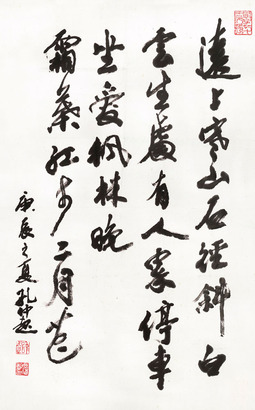 遠上寒山石徑斜白
雲生處有人家停車
坐愛楓林晚
霜葉紅於二月花
庚辰之夏孔仲起